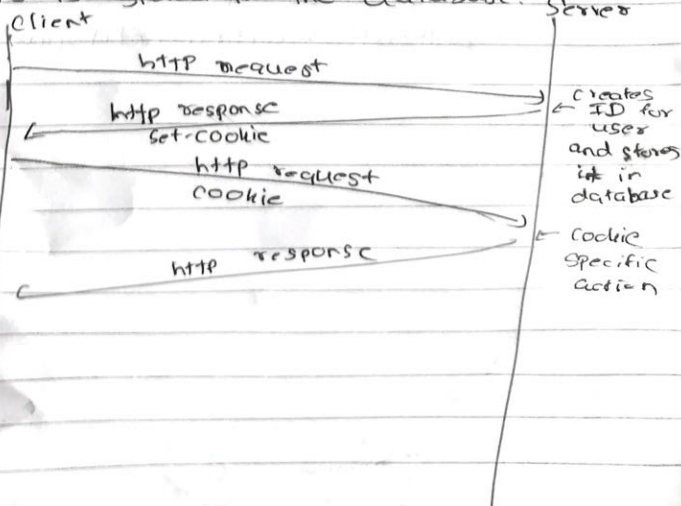 is stored in the database.
Client
Server
http request
creates
ID for
user
and stores
it in
database
http response
set-cookie
http request
cookie
cookie
specific
action
http response